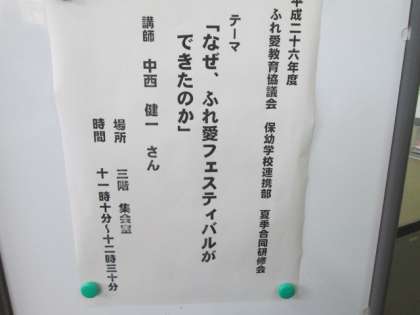 平成二十六年度
ふれ愛教育協議会　保幼学校連携部　夏季合同研修会
テーマ
「なぜ、ふれ愛フェスティバルが
できたのか」
講師　中西　健一　さん
場所　三階　集会室
時間　十一時十分～十二時三十分